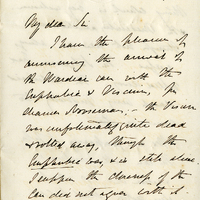 My dear Sir
I have the pleasure of
announcing the arrival of
the Wardian case with the
Euphorbia & Viscum, for
Deanea Roseman :— the Viscum
was unfortunately quite dead
& rotted away, though the
Euphorbia was, & is still alive.
I suppose the closeness of the
Case did not agree with it.